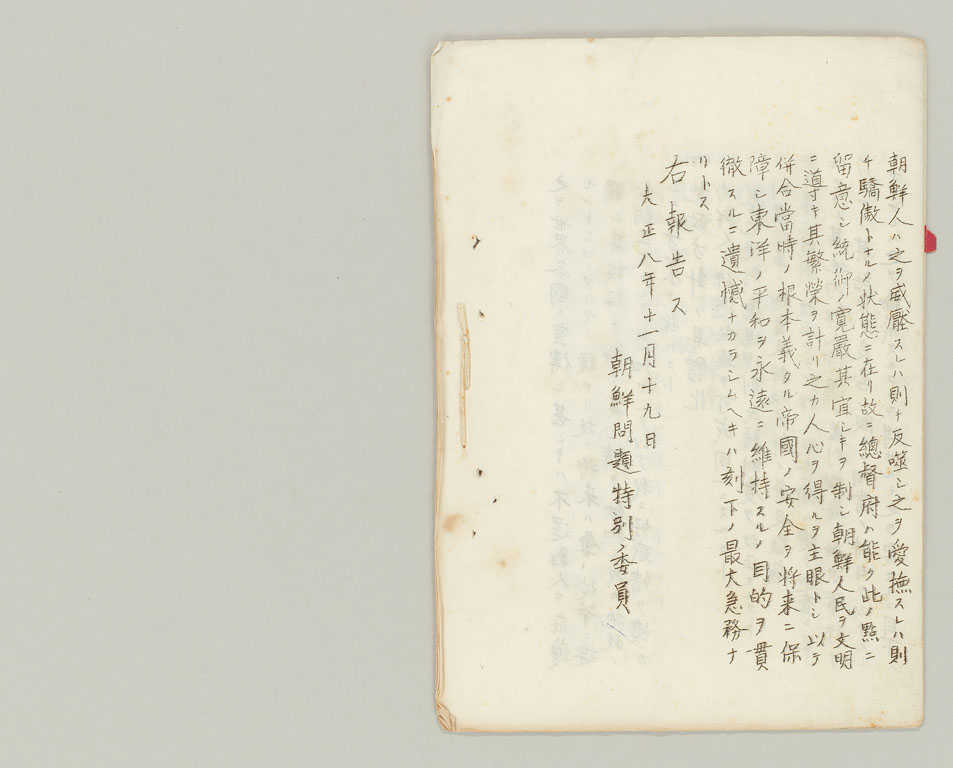 朝鮮人ハ之ヲ威壓スレハ則チ反噬シ之ヲ愛撫スレハ則
チ驕傲トナルノ状態ニ在リ故ニ總督府ハ能ク此ノ點ニ
留意シ統御ノ寛嚴其宜シキヲ制シ朝鮮人民ヲ文明
ニ導キ其繁榮ヲ計リ之カ人心ヲ得ルヲ主眼トシ以テ
併合當時ノ根本義タル帝國ノ安全ヲ将来ニ保
障シ東洋ノ平和ヲ永遠ニ維持スルノ目的ヲ貫
徹スルニ遺憾ナカラシムヘキハ刻下ノ最大急務ナ
リトス
右報告ス
大正八年十一月十九日
朝鮮問題特別委員